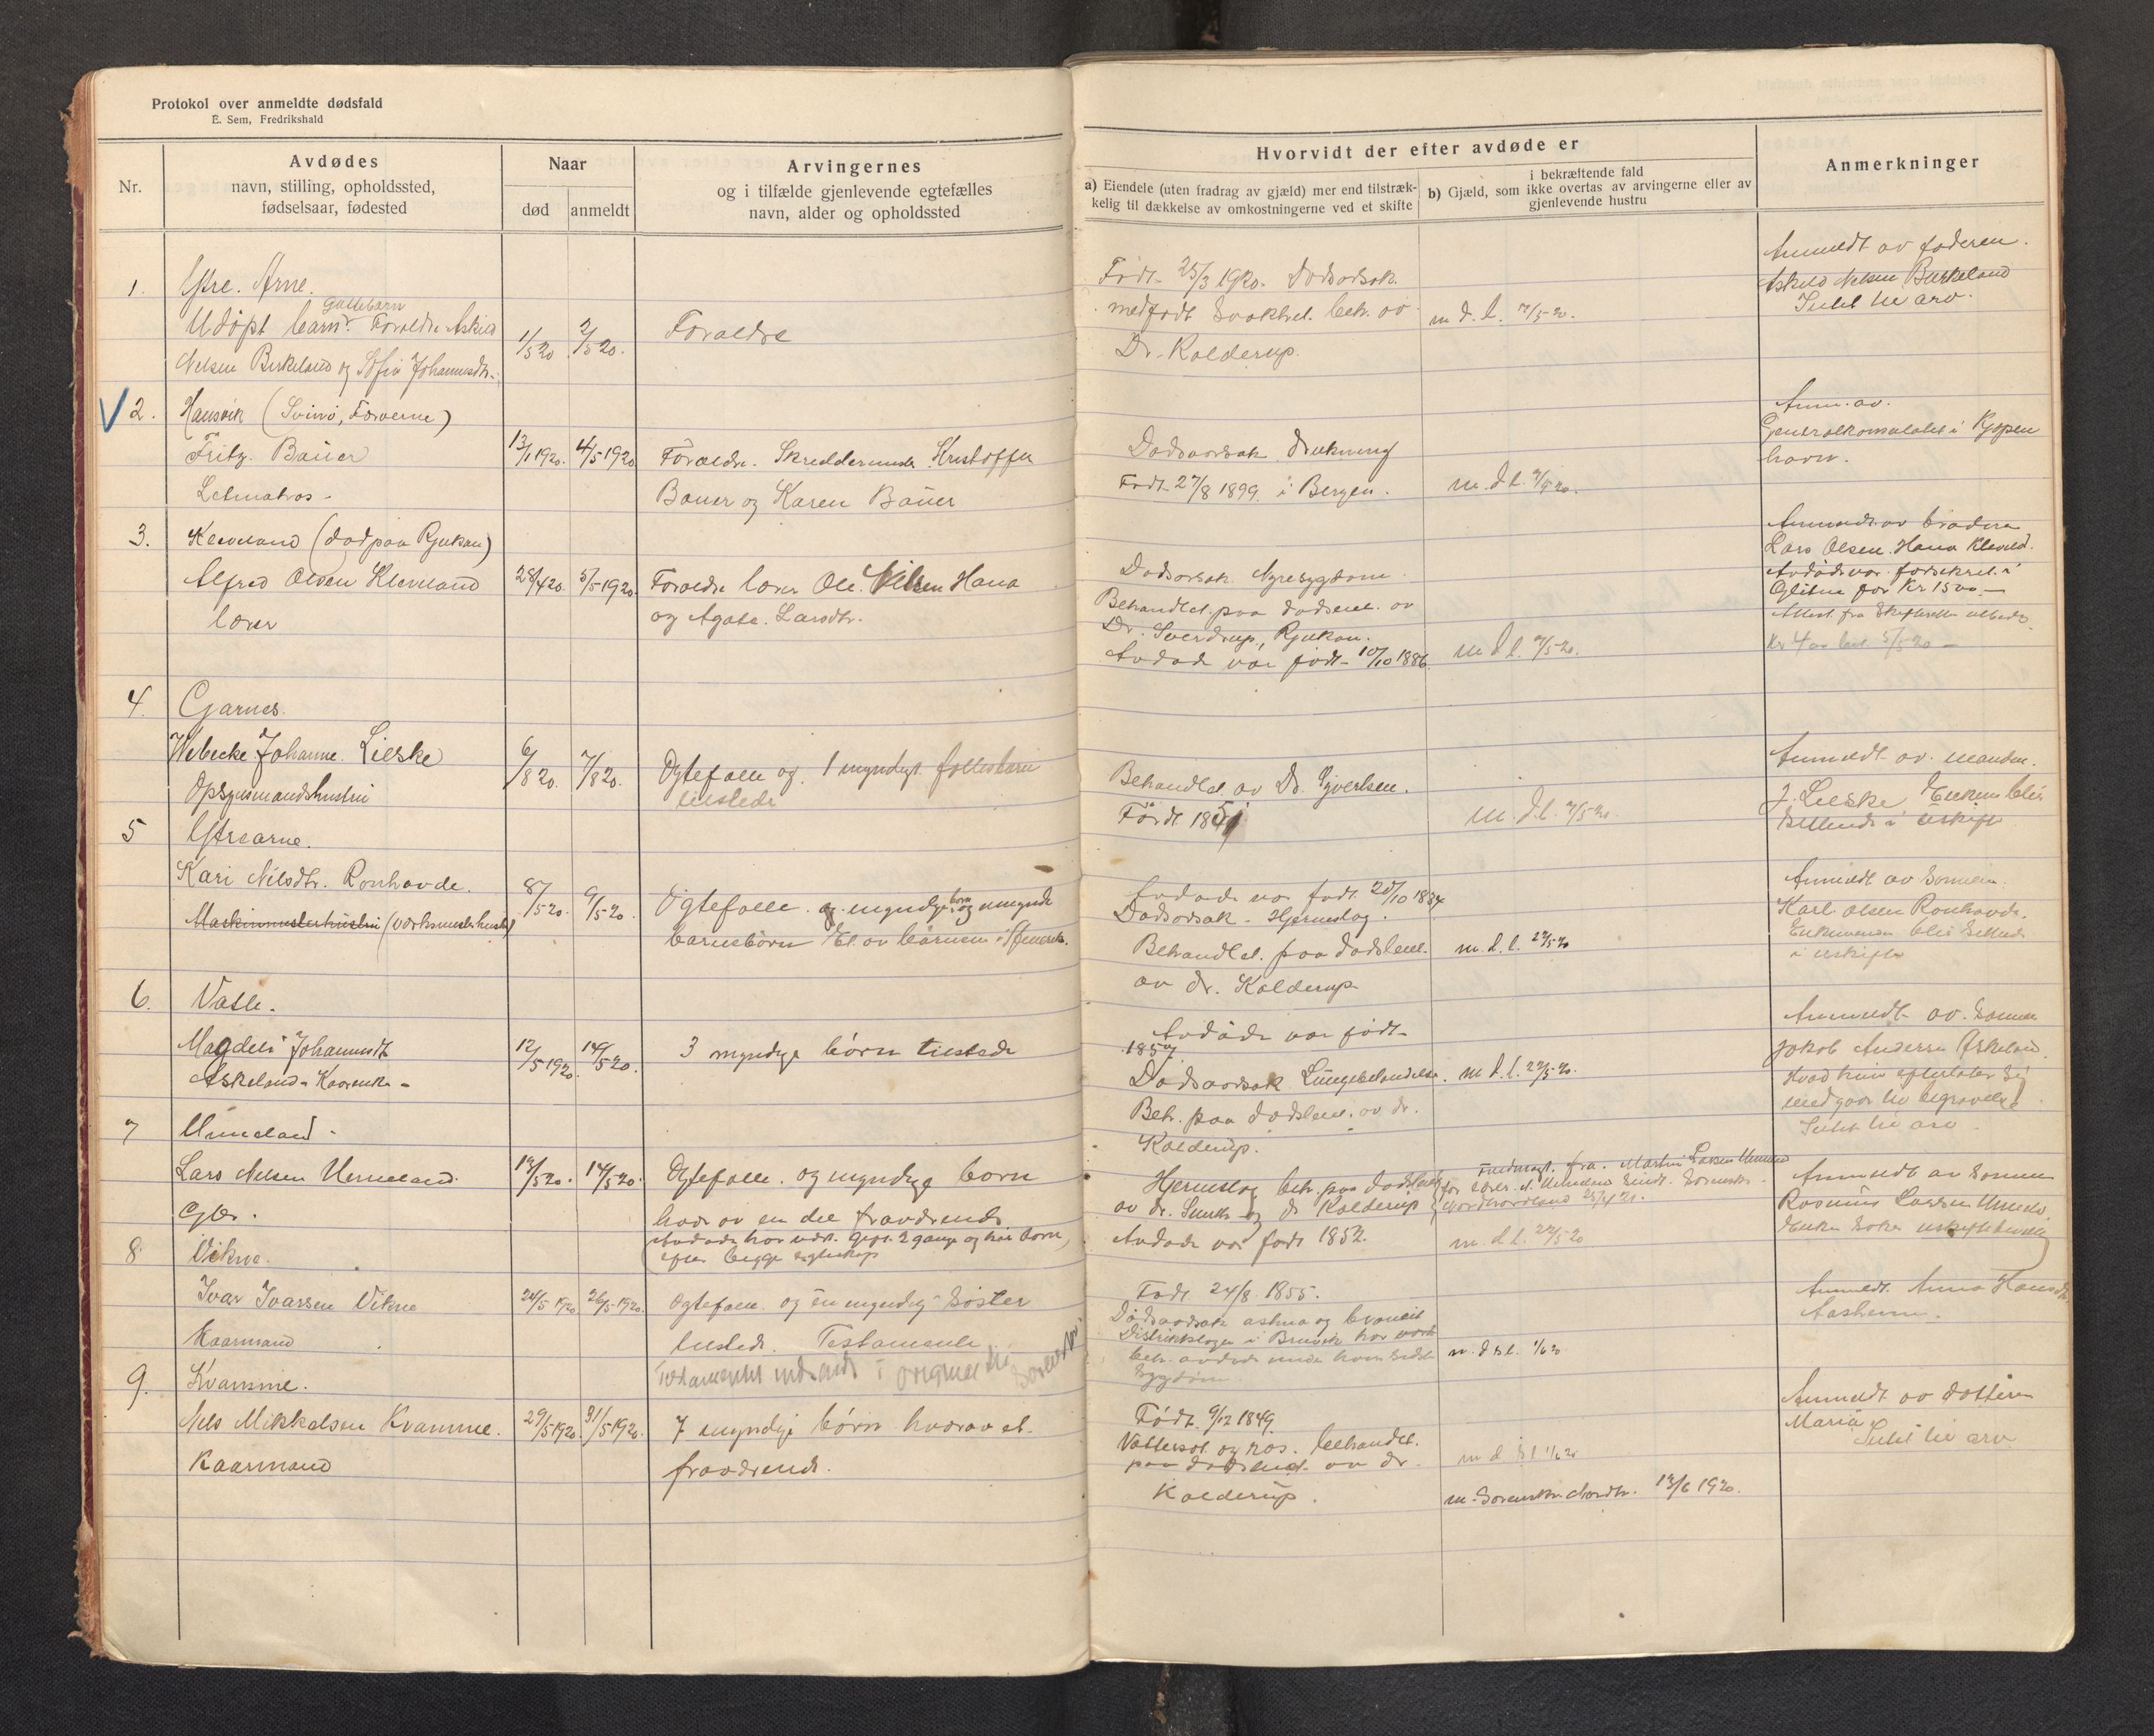 Protokol over anmeldte dødsfald
E. Sem, Fredrikshald
Nr.
Avdødes
navn, stilling, opholdssted,
fødselsaar, fødested
Naar
død
anmeldt
Arvingernes
og i tilfælde gjenlevende egtefælles
navn, alder og opholdssted
Hvorvidt der efter avdøde er
a) Eiendele (uten fradrag av gjæld) mer end tilstræk-
kelig til dækkelse av omkostningerne ved et skifte
i bekræftende fald
b) Gjæld, som ikke overtas av arvingerne eller av
gjenlevende hustru
Anmerkninger
1. Ytre. Arne.
Udøpt barn. Guttebarn Foreldre Askild
Nelsen Birkeland og Sofie Johannesdtr.
1/5 20 2/5 20.
Foreldre
Født 25/3 1920. Dødsorsak.
medfødt svakhet. beh. av
Dr. Kolderup.
m. d. l. 7/5-20.
Anmeldt av faderen.
Askild Nelsen Birkeland
Intet til arv.
2. Hansvik (Svinø, Færøerne)
Fritz Bauer
Letmatros.
13/1 1920. 4/5 1920
Foreldre. Skreddermester Kristoffer
Bauer og Karen Bauer
Dødsaarsak Drukning
Født 27/8 1899. i Bergen.
m. d. l. 7/5 20.
Anm. av.
Generalkonsulatet i Kjøpen
havn.
3. Kleveland (død paa Rjukan)
Alfred Olsen Kleveland
lærer
28/4 20. 5/5 1920
Foreldre lærer Ole Nilsen Hana
og Agate. Larsdtr.
Dødsorsak Nyresygdom
Behandlet paa dødsleiet av
Dr. Sverdrup, Rjukan.
Avdøde var født 10/10 1886.
m. d. l. 7/5-20.
Anmeldt av broderen
Lars Olsen Hana Kleveld.
Avdøde var forsikret i
Glitne for Kr 1500.—
Attest fra Skifteretten
4. Garnes.
Webecke Johanne Lieske
Opsynsmandshustru
6/8 20. 7/8 20.
Egtefælle og 1 myndigt fellesbarn
tilstede
Behandlet av Dr. Gjvertsen.
Født 1851
m. d. l. 7/5-20
Anmeldt av manden.
J. Lieske Enkem. blir
sittende i uskifte
5 Ytrearne.
Kari Nilsdtr. Ronhovde.
Maskinmesterhustru (verksmesterhustru)
8/5-20. 9/5-20.
Egtefælle. og myndige børn og umynd
barnebørn Et av børnene i Amerika.
Avdøde var født 20/10 1834
Dødsorsak. Hjerneslag.
Behandlet paa dødsleiet.
av dr. Kolderup
m. d. l. 27/5-20
Anmeldt av sønnen
Karl Olsen Ronhovde.
Enkemanden blir sittende
i uskifte
6. Valle.
Magdeli Johannesdt
Askeland - Kaarenke -
12/5 1920. 14/5 20.
3 myndige børn tilstede
Avdøde var født
1857
Dødsaarsak Lungebetendelse.
Beh. paa dødsleiet av dr.
Kolderup.
m. d. l. 27/5-20.
Anmeldt av. sønnen
Jakob Andersen Askeland.
Hvad hun efterlater sig
medgaar til begravelse
Intet til arv.
7 Unneland.
Lars Nelsen Unneland
Gbr.
13/5 20. 14/5 20.
Egtefælle. og myndige børn
hvor av en del fraværende
(Avdøde har vært gift 2 gange og har børn
efter begge egteskap)
Hjerneslag beh. paa dødsleiet
av dr. Smith og dr Kolderup
Avdøde var født 1852.
Fuldmagt. fra. Martin Larsen Unneland
Nordhordland 25/4 21.
m. d. l. 27/5-20
Anmeldt av sønnen
Rasmus Larsen Unnelan
Enken søker uskiftebevilling
8. Vikne.
Ivar Ivarsen Vikne
Kaarmand
24/5 1920. 26/5-1920.
Egtefælle. og en myndig søster
tilstede. Testamente
Testamentet indsendt i original til Sorenskr.
Født 24/8. 1855.
Dødsaarsak astma og bronkit
Distriktslægen i Bruvik har vært
beh. avdøde under hans sidste
sygdom
m. d. l. 1/6 20.
Anmeldt. Anna Hansdtr
Aasheim.
9. Kvamme.
Nels Mikkelsen Kvamme.
Kaarmand
29/5 1920. 31/5 1920.
7 myndige børn hvorav et.
fraværende.
Født 9/12 1849.
Vattersot og ros. behandlet
paa dødsleiet av dr.
Kolderup.
m. d. l. 1/6 20
m. Sorenskr. Nordh. 13/6 1920.
Anmeldt av datteren
Maria
Intet til arv